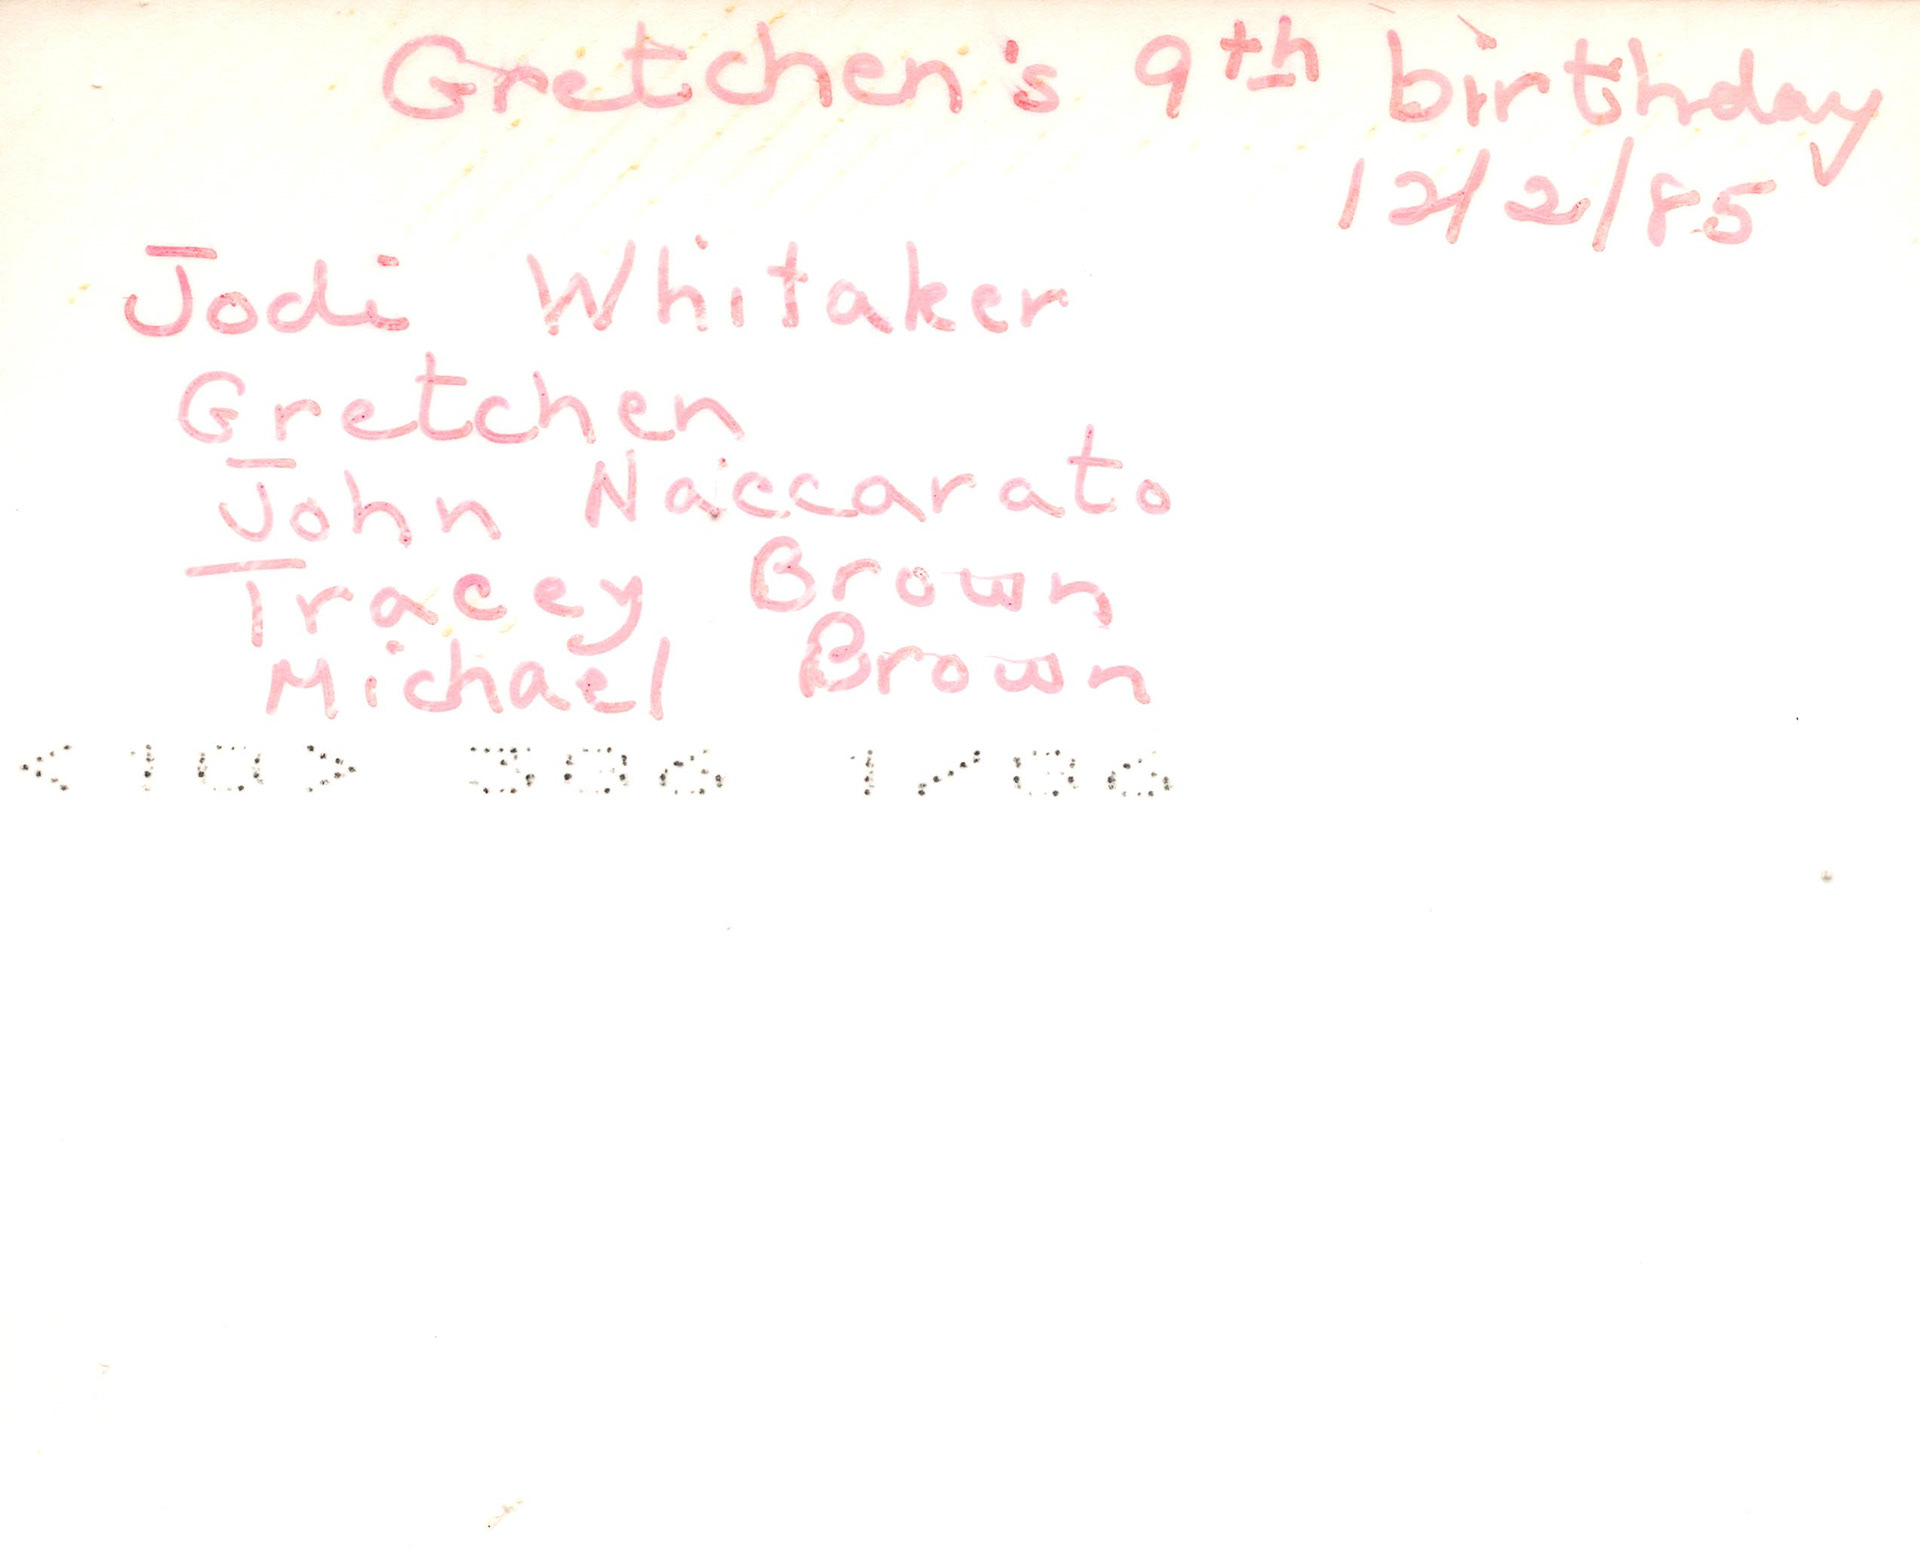 Gretchen's 9th birthday
12/2/85
Jodi Whitaker
Gretchen
John Naccarato
Tracey Brown
Michael Brown
<10> 386 1/86